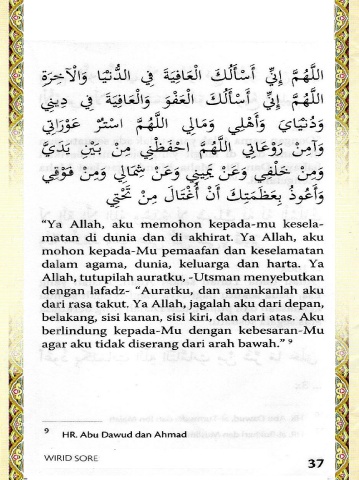 اللَّهُمَّ إِنِّي أَسْأَلُكَ الْعَافِيَةَ فِي الدُّنْيَا وَالْآخِرَةِ
اللَّهُمَّ إِنِّي أَسْأَلُكَ الْعَفْوَ وَالْعَافِيَةَ فِي دِينِي
وَدُنْيَايَ وَأَهْلِي وَمَالِي اللَّهُمَّ اسْتُرْ عَوْرَاتِي
وَآمِنْ رَوْعَاتِي اللَّهُمَّ احْفَظْنِي مِنْ بَيْنِ يَدَيَّ
وَمِنْ خَلْفِي وَعَنْ يَمِينِي وَعَنْ شِمَالِي وَمِنْ فَوْقِي
وَأَعُوذُ بِعَظَمَتِكَ أَنْ أُغْتَالَ مِنْ تَحْتِي
“Ya Allah, aku memohon kepada-mu kesela-
matan di dunia dan di akhirat. Ya Allah, aku
mohon kepada-Mu pemaafan dan keselamatan
dalam agama, dunia, keluarga dan harta. Ya
Allah, tutupilah auratku, -Utsman menyebutkan
dengan lafadz- “Auratku, dan amankanlah aku
dari rasa takut. Ya Allah, jagalah aku dari depan,
belakang, sisi kanan, sisi kiri, dan dari atas. Aku
berlindung kepada-Mu dengan kebesaran-Mu
agar aku tidak diserang dari arah bawah.” 9
9 HR. Abu Dawud dan Ahmad
WIRID SORE
37